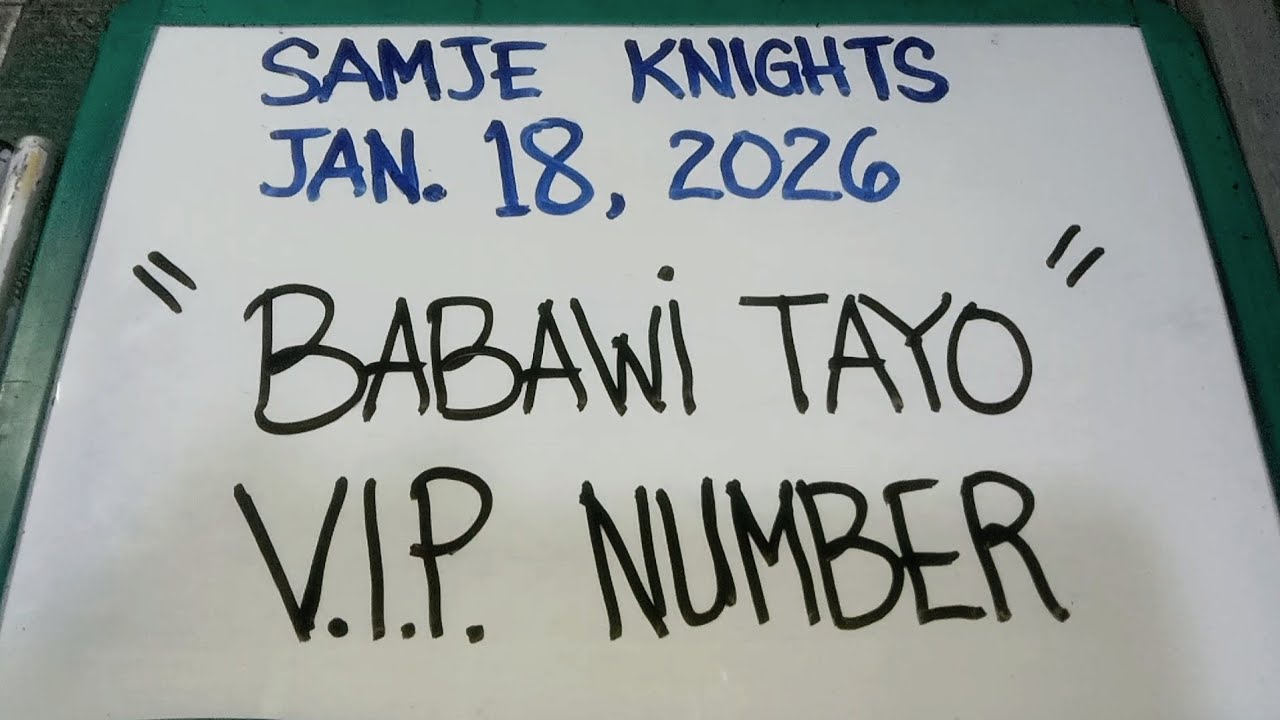 SAMJE KNIGHTS
JAN. 18, 2026
"BABAWi TAYO"
V.I.P. NUMBER